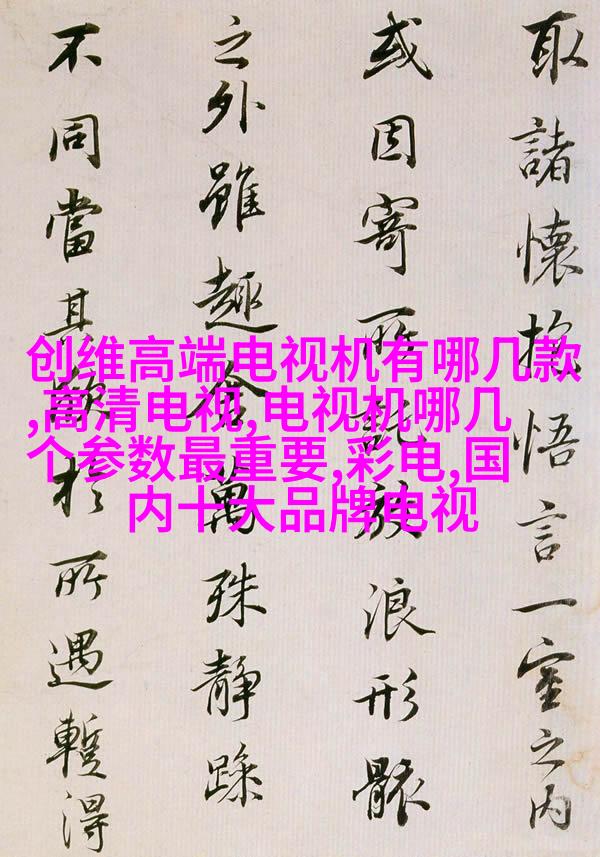 取諸懷抱悟言一室之内
或因寄所託放浪形骸
之外雖趣舍萬殊靜躁
不同當其欣於所遇蹔得
创维高端电视机有哪几款
,高清电视,电视机哪几
个参数最重要,彩电,国
内十大品牌电视